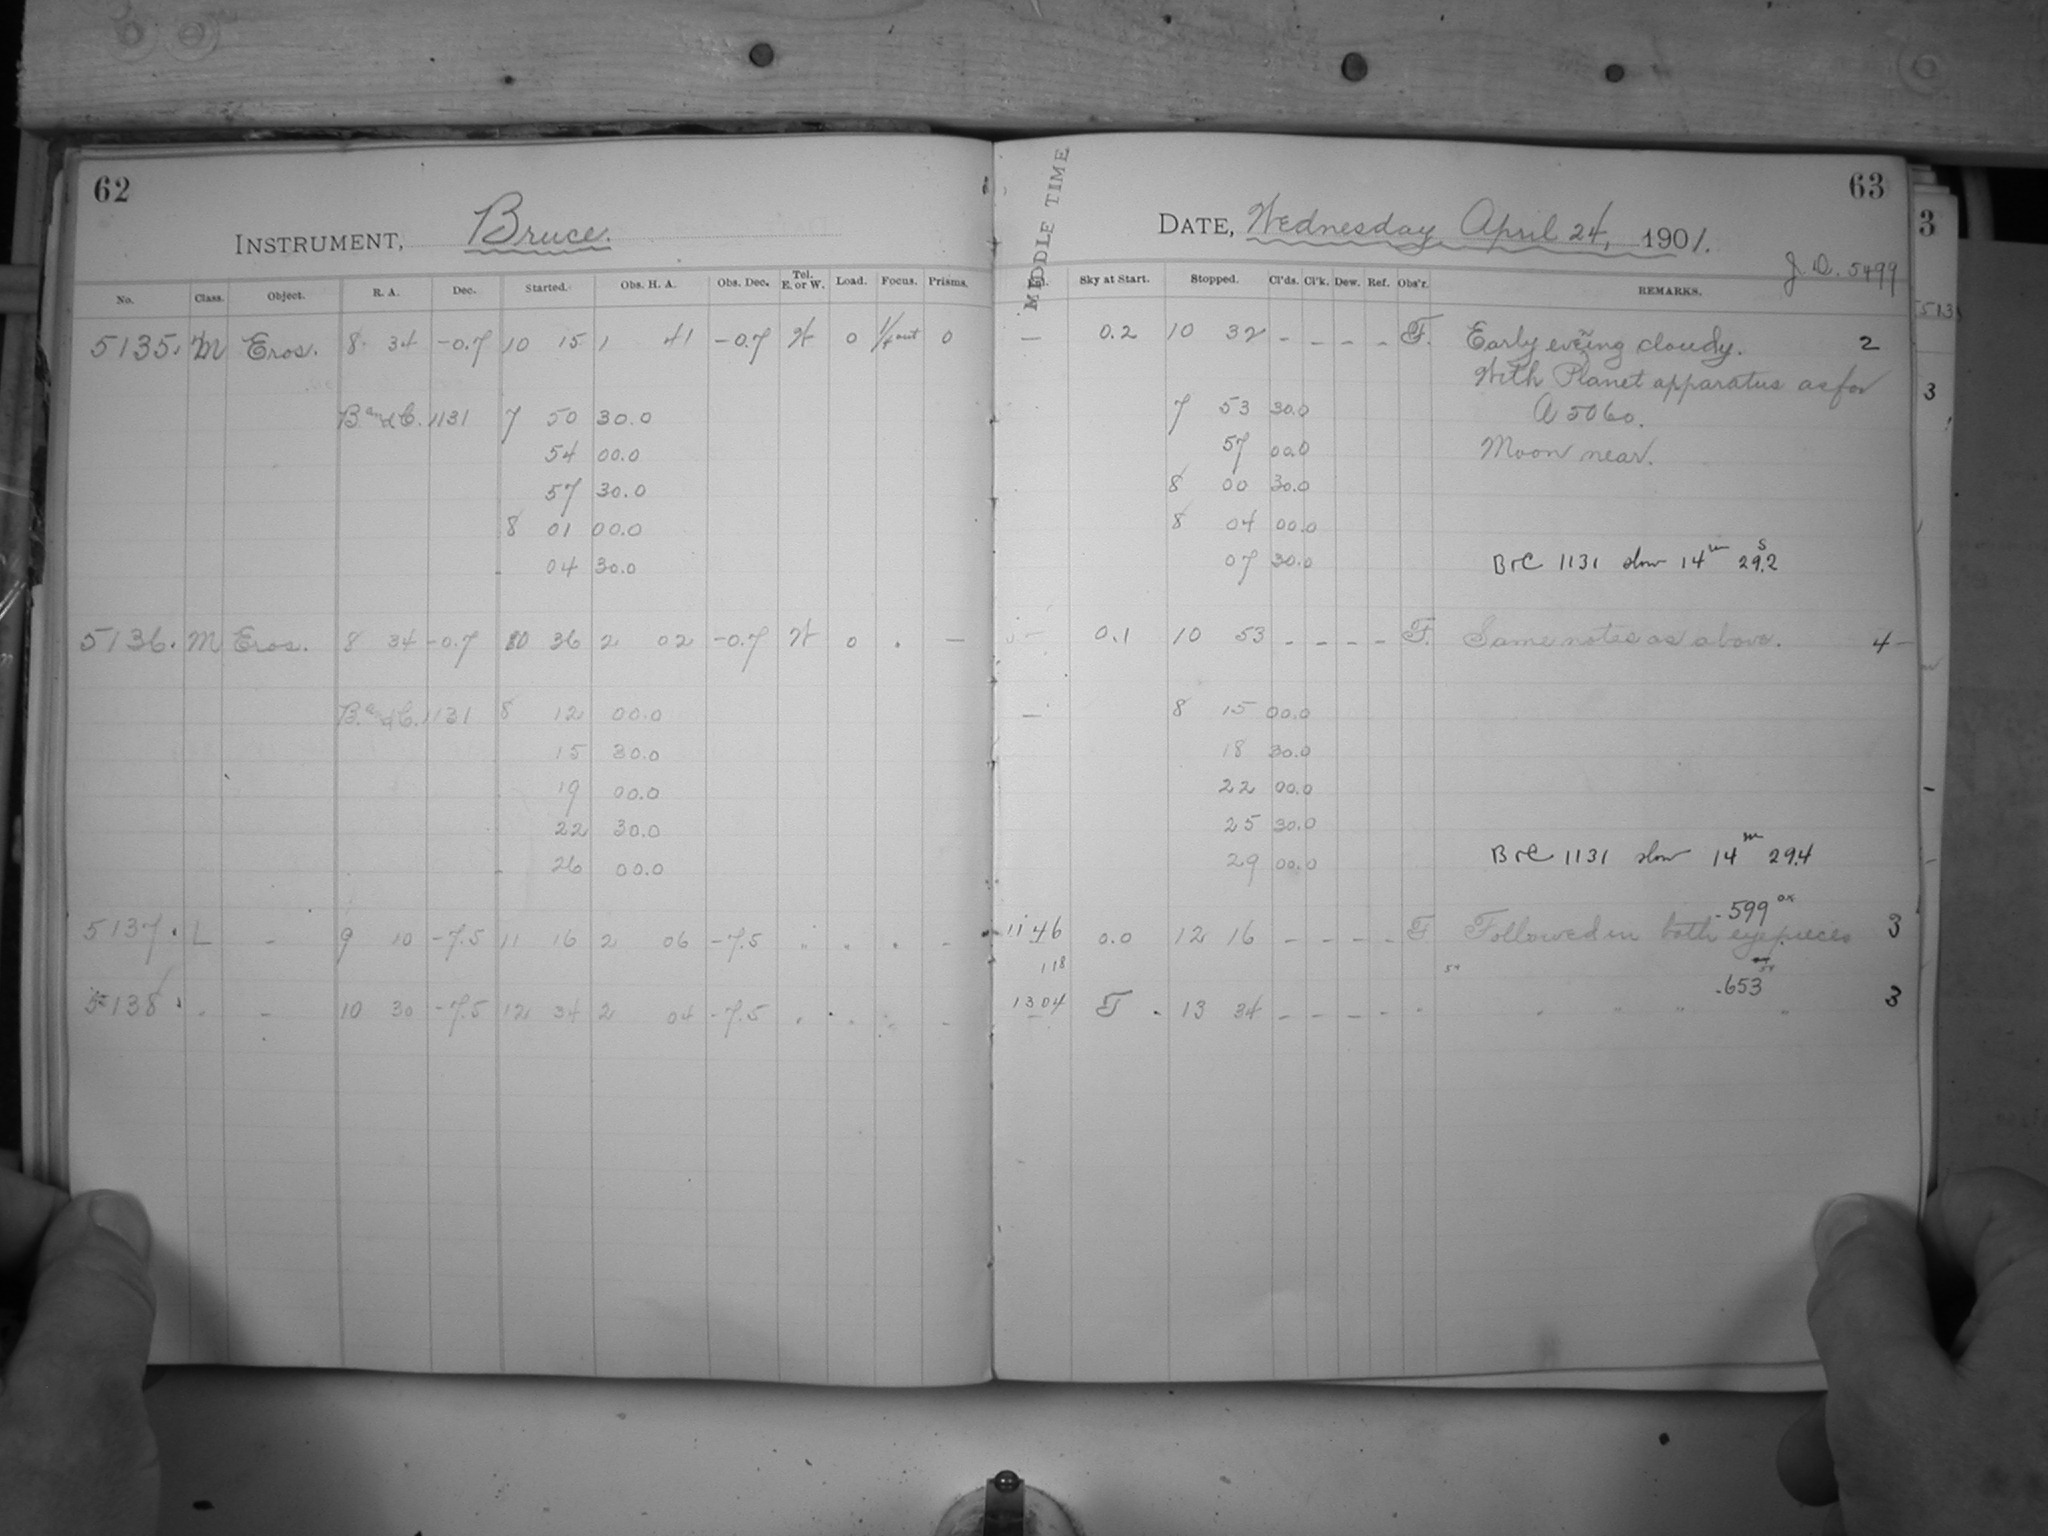 62
INSTRUMENT, Bruce.
No. Class. Object. R. A. Dec. Started. Obs. H. A. Obs. Dec. Tel. E. or W. Load. Focus. Prisms.
5135. M Eros. 8 34 -0.7 10 15 1 41 -0.7 W 0 1/4 out 0
B. and C. 1131 7 50 30.0
54 00.0
57 30.0
8 01 00.0
04 30.0
5136. M Eros. 8 34 -0.7 10 36 2 02 -0.7 W 0 . —
B. and C. 1131 8 12 00.0
15 30.0
19 00.0
22 30.0
26 00.0
5137. L - 9 10 -7.5 11 16 2 06 -7.5 " . . -
5138. . - 10 30 -7.5 12 34 2 04 -7.5 . . . -
63
MIDDLE TIME
DATE, Wednesday April 24, 1901.
J. D. 5499
Sky at Start. Stopped. Cl'ds. Cl'k. Dew. Ref. Obs'r. REMARKS.
— 0.2 10 32 - - - - F. Early evening cloudy. 2
With Planet apparatus as for
7 53 30.0 A 5060.
57 00.0 Moon near.
8 00 30.0
8 04 00.0
07 30.0 B+C 1131 slow 14m 29.2s
— 0.1 10 53 - - - - F. Same notes as above. 4
— 8 15 00.0
18 30.0
22 00.0
25 30.0
29 00.0 B+C 1131 slow 14m 29.4
.599
11 46 0.0 12 16 - - - - F Followed in both eyepieces 3
1 18
.653
13 04 F. 13 34 - - - - " " " " " 3
3
513
3